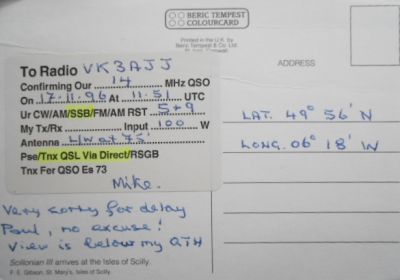 BERIC TEMPEST
COLOURCARD
Printed in the U.K. by
Beric Tempest & Co. Ltd.
ADDRESS
To Radio VK3AJJ
Confirming Our 14 MHz QSO
On 17.11.96 At 11.51 UTC
Ur CW/AM/SSB/FM/AM RST 5&9
My Tx/Rx Input 100 W
Antenna L/W at 75'
Pse/Tnx QSL Via Direct/RSGB
Tnx For QSO Es 73
Mike.
LAT. 49° 56' N
LONG. 06° 18' W
Very sorry for delay
Paul, no excuse!
View is below my QTH
Scillonian III arrives at the Isles of Scilly.
F. E. Gibson, St. Mary's, Isles of Scilly.